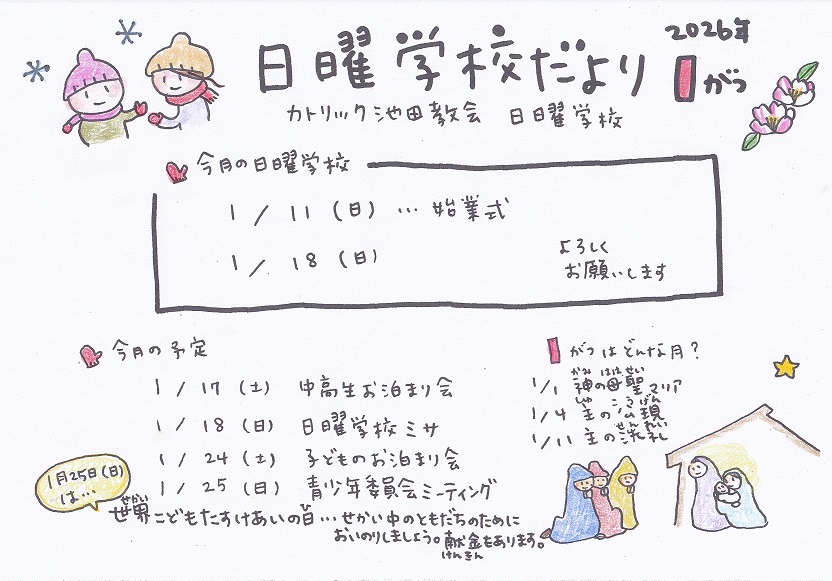 日曜学校だより
2026年
1がつ
カトリック池田教会 日曜学校
今月の日曜学校
1/11(日)…始業式
1/18(日)
よろしく
お願いします
今月の予定
1/17(土) 中高生お泊まり会
1/18(日) 日曜学校ミサ
1/24(土) 子どものお泊まり会
1/25(日) 青少年委員会ミーティング
1月25日(日)
は…
せかい ひ
世界こどもたすけあいの日…せかい中のともだちのために
おいのりしましょう。献金もあります。
けんきん
1がつはどんな月?
かみ はは せい
1/1 神の母聖マリア
しゅ こうげん
1/4 主の公現
せんれい
1/11 主の洗礼